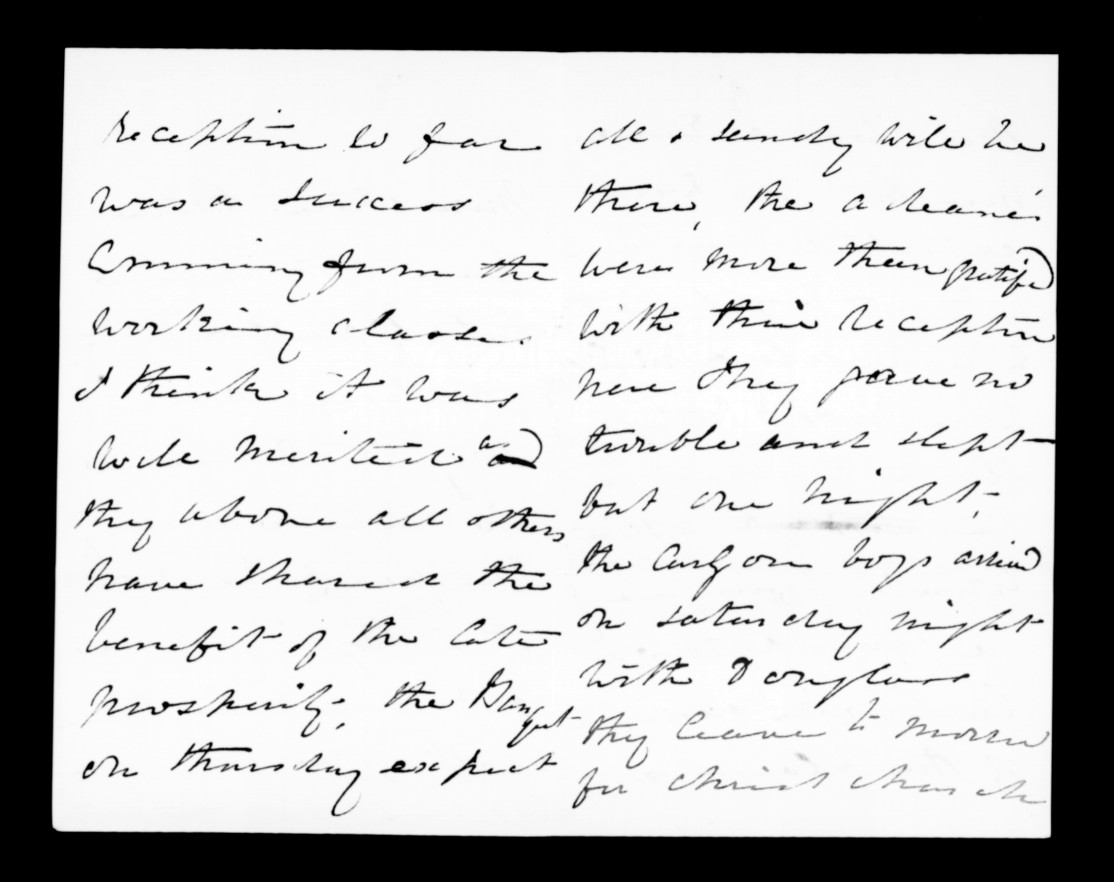 reception so far
was a success
Comming from the
working classes.
I think it was
well merited as
they above all others
have shared the
benefit of the late
prosperity, the Banquet
on thursday expect
all & sundry will be
there, the acleane's
were more than gratified
with their reception
here they gave no
trouble and slept
but one night,
the Curgon boys arrived
on saturday night
with Douglass
they leave to morrow
for christ church